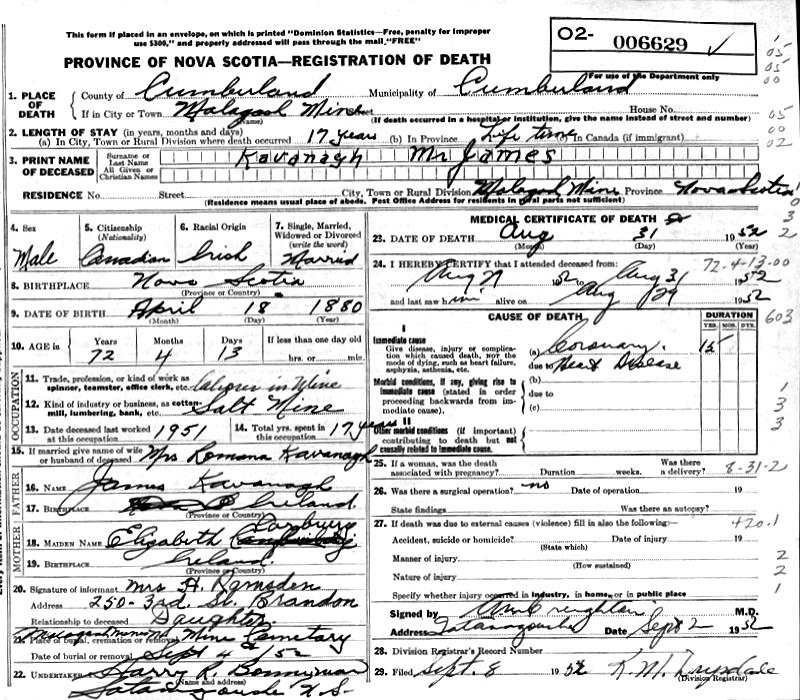 This form if placed in an envelope, on which is printed "Dominion Statistics—Free, penalty for improper
use $300," and properly addressed will pass through the mail "FREE"
PROVINCE OF NOVA SCOTIA—REGISTRATION OF DEATH
02- 006629 ✓
For use of the Department only
1. PLACE OF DEATH
County of Cumberland Municipality of Cumberland
If in City or Town Malagash Mine House No.
(Name) (If death occurred in a hospital or institution, give the name instead of street and number)
2. LENGTH OF STAY (in years, months and days)
(a) In City, Town or Rural Division where death occurred 17 years (b) In Province Life time (c) In Canada (if immigrant)
3. PRINT NAME OF DECEASED
Surname or Last Name Kavanagh Mr James
All Given or Christian Names
RESIDENCE No. Street City, Town or Rural Division Malagash Mine Province Nova Scotia
(Residence means usual place of abode. Post Office Address for residents in rural parts not sufficient)
4. Sex Male
5. Citizenship (Nationality) Canadian
6. Racial Origin Irish
7. Single, Married, Widowed or Divorced (write the word) Married
8. BIRTHPLACE Nova Scotia
(Province or Country)
9. DATE OF BIRTH April 18 1880
(Month) (Day) (Year)
10. AGE in Years 72 Months 4 Days 13 If less than one day old hrs. or min.
OCCUPATION
11. Trade, profession, or kind of work as spinner, teamster, office clerk, etc. Laborer in Mine
12. Kind of industry or business, as cotton-mill, lumbering, bank, etc. Salt Mine
13. Date deceased last worked at this occupation 1951
14. Total yrs. spent in this occupation 17 years
15. If married give name of wife or husband of deceased Mrs Romona Kavanagh
FATHER
16. NAME James Kavanagh
17. BIRTHPLACE Ireland
(Province or Country)
MOTHER
18. MAIDEN NAME Elizabeth
19. BIRTHPLACE Ireland
(Province or Country)
20. Signature of informant Mrs H. Ramsden
Address 250-3rd St. Brandon
Relationship to deceased Daughter
21. Place of burial, cremation or removal Mine Cemetary
Date of burial or removal Sept 4th/52
22. UNDERTAKER Harry R. Bonnyman
(Name and address)
Tatamagouche N.S.
MEDICAL CERTIFICATE OF DEATH
23. DATE OF DEATH Aug 31 1952
(Month) (Day) (Year)
24. I HEREBY CERTIFY that I attended deceased from: 72-4-13-00
Aug 29 1952 Aug 31 1952
and last saw him alive on Aug 29 1952
CAUSE OF DEATH DURATION
YRS. MOS. DYS.
603
I
Immediate cause
Give disease, injury or complication which caused death, NOT the mode of dying, such as heart failure, asphyxia, asthenia, etc.
(a) Coronary 15
due to Heart Disease
Morbid conditions, if any, giving rise to immediate cause (stated in order proceeding backwards from immediate cause).
(b)
due to
(c)
II
Other morbid conditions (if important) contributing to death but not causally related to immediate cause.
25. If a woman, was the death associated with pregnancy? Duration weeks. Was there a delivery? 8-31-2
26. Was there a surgical operation? no Date of operation 19
State findings Was there an autopsy?
27. If death was due to external causes (violence) fill in also the following:— 420.1
Accident, suicide or homicide? Date 19
(State which)
Manner of injury
(How sustained)
Nature of injury
Specify whether injury occurred in industry, in home, or in public place
Signed by Creighton M.D.
Address Tatamagouche Date Sept 2 1952
28. Division Registrar's Record Number
29. Filed Sept. 8 1952 K.M. Drysdale
(Division Registrar)